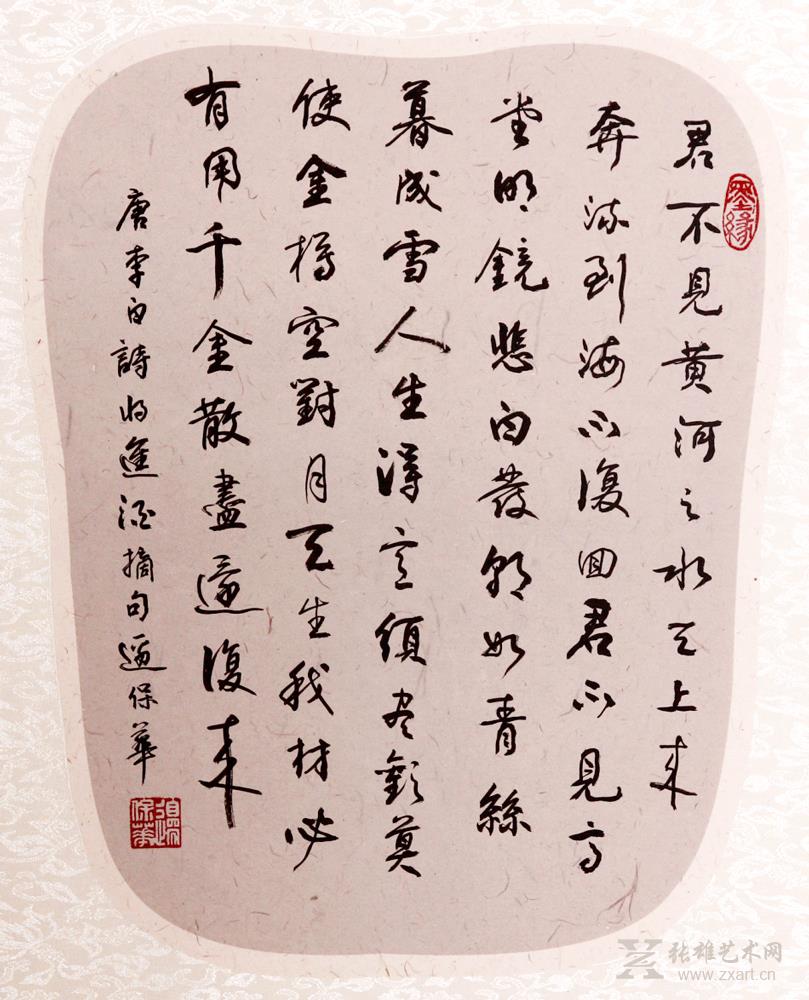 君不見黄河之水天上来
奔流到海不復回君不見高
堂明鏡悲白发朝如青絲
暮成雪人生得意須尽歡莫
使金樽空對月天生我材必
有用千金散盡還復来
唐李白詩将進酒摘句邊保華
墨缘
邊保華
张雄艺术网
www.zxart.cn